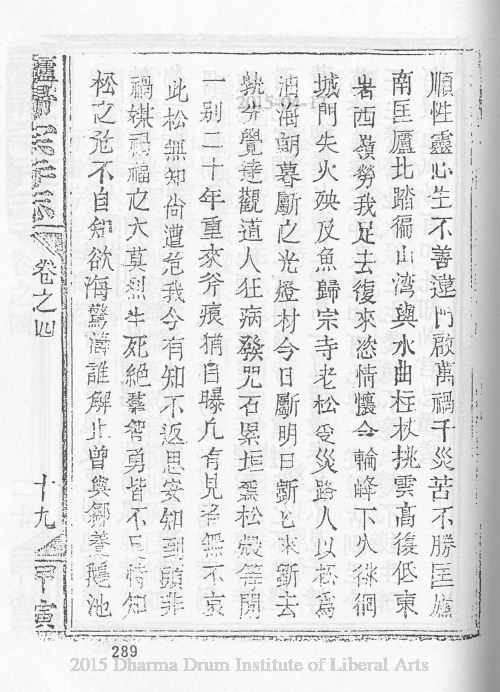 順性靈心生不善達門啟萬禍千災苦不勝匡廬
南匡廬北踏徧山湾與水曲柱杖挑雲高復低東
岩西嶺勞我足去復來慾情懷合輪峰下久徘徊
城門失火殃及魚歸宗寺老松受災路人以松為
油海朝暮斷之光燈材今日斷明日斷已來斷去
勢分覺達觀道人狂病發咒石累垣為松等閒
一別二十年重來斧痕猶自曝凡有見者無不哀
此松無知尙遭危我今有知不返思安知到頭非
禍媒禍福之大莫烈生死絕羣智勇皆不情知
松之危不自知欲海驚濤誰解止曾與鄒養鵝池
卷之四
十九
甲寅
289
2015 Dharma Drum Institute of Liberal Arts